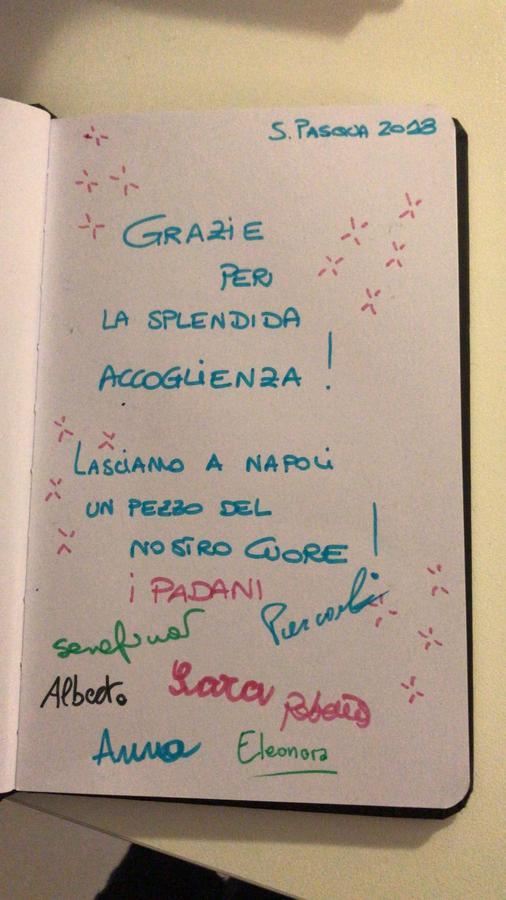 S. PASQUA 2018
GRAZiE
PER
LA SPLENDIDA
ACCOGLiENZA !
LASCiAMO A NAPOLi
UN PEZZO DEL
NOSTRO CUORE !
i PADANI
Piercarlo
Serafino
Alberto
Sara
Roberto
Anna
Eleonora